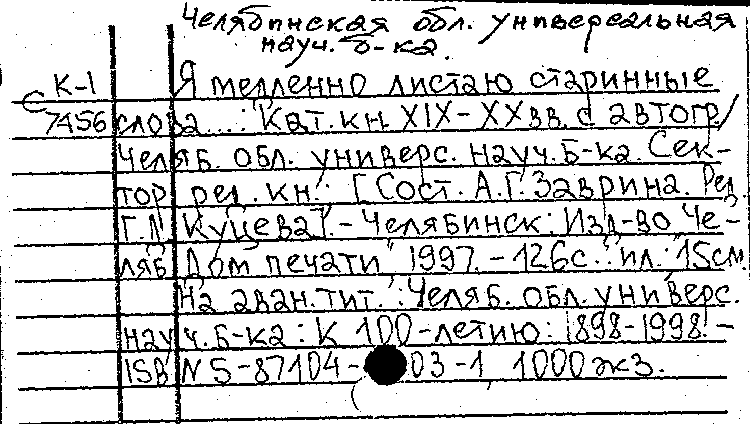 Челябинская обл. универсальная
науч. б-ка.
К-1 Я медленно листаю старинные
С 7456 слова...: Кат. кн. XIX-XX вв. с автогр/
Челяб. обл. универс. науч. б-ка. Сек-
тор ред. кн.: [Сост. А.Г. Заврина. Ред.
Г.П. Куцева]. - Челябинск: Изд-во Че-
ляб. Дом печати" 1997. - 126с.: ил.: 15см.
На аван. тит.: Челяб. обл. универс.
науч. б-ка: К 100-летию: 1898-1998. -
ISBN 5-87184- 03-1, 1000 экз.